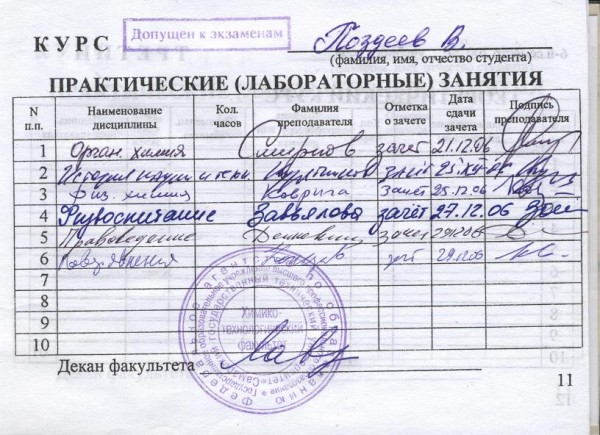 Допущен к экзаменам
КУРС Поздеев В.
(фамилия, имя, отчество студента)
ПРАКТИЧЕСКИЕ (ЛАБОРАТОРНЫЕ) ЗАНЯТИЯ
N п.п. Наименование дисциплины Кол. часов Фамилия преподавателя Отметка о зачете Дата сдачи зачета Подпись преподавателя
1 Орган. химия Смирнов зачет 21.12.06
2 История науки и техн. зачёт
3 Физ. химия Коврига Зачёт 25.12.06
4 Физвоспитание Завьялова зачёт 27.12.06
5 Правоведение зачет 29.12.06
6 зач 29.12.06
7
8
9
10
Химико-технологический факультет
Декан факультета
11